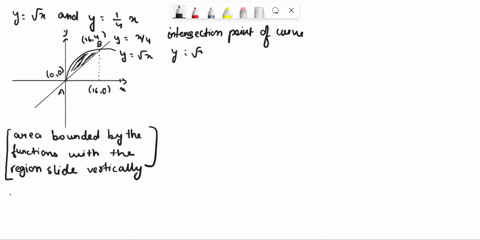 y = √x and y = 1/4 x
intersection point of curve
y = √x
y
(16,4)
B
y = x/4
y = √x
(0,0)
A
(16,0)
x
area bounded by the
functions with the
region slide vertically